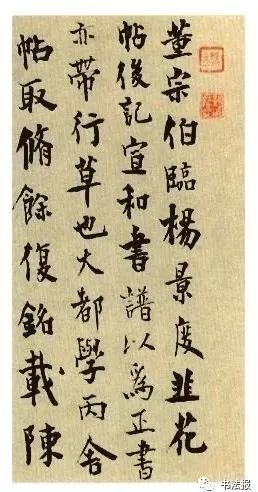 董宗伯臨楊景度韭花
帖後記宣和書譜以為正書
亦帶行草也大都學丙舍
帖取脩餘復銘載陳
书法报